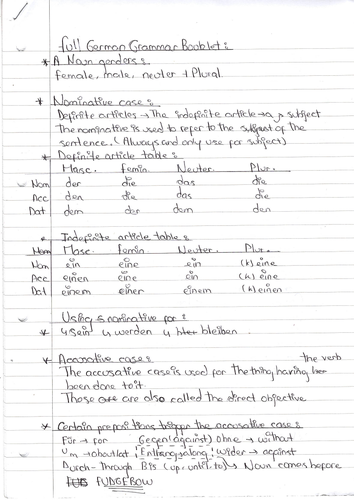 full German Grammar Booklet:
* A Noun genders:
female, male, neuter + Plural.
* Nominative case:
Definite articles → The indefinite article → a, subject
The nominative is used to refer to the subject of the
sentence. (Always and only use for subject)
* Definite article table:
Masc. Femin Neuter. Plur.
Nom der die das die
Acc den die das die
Dat dem der dem den
* Indefinite article table:
Nom Masc Femin Neuter. Plur.
Nom ein eine ein (k)eine
Acc einen eine ein (k)eine
Dat einem einer einem (k)einen
Using a nominative for:
* ↳ Sein ↳ werden ↳ bleiben
* Accusative case: the verb
The accusative case is used for the thing having
been done to it.
These are also called the direct objective
* Certain prepositions trigger the accusative case:
Für → for Gegen (against) ohne → without
Um → about/at Entlang (along) Wider → against
Durch - through Bis (up, until, to) → Noun comes before
FUDGEBOW